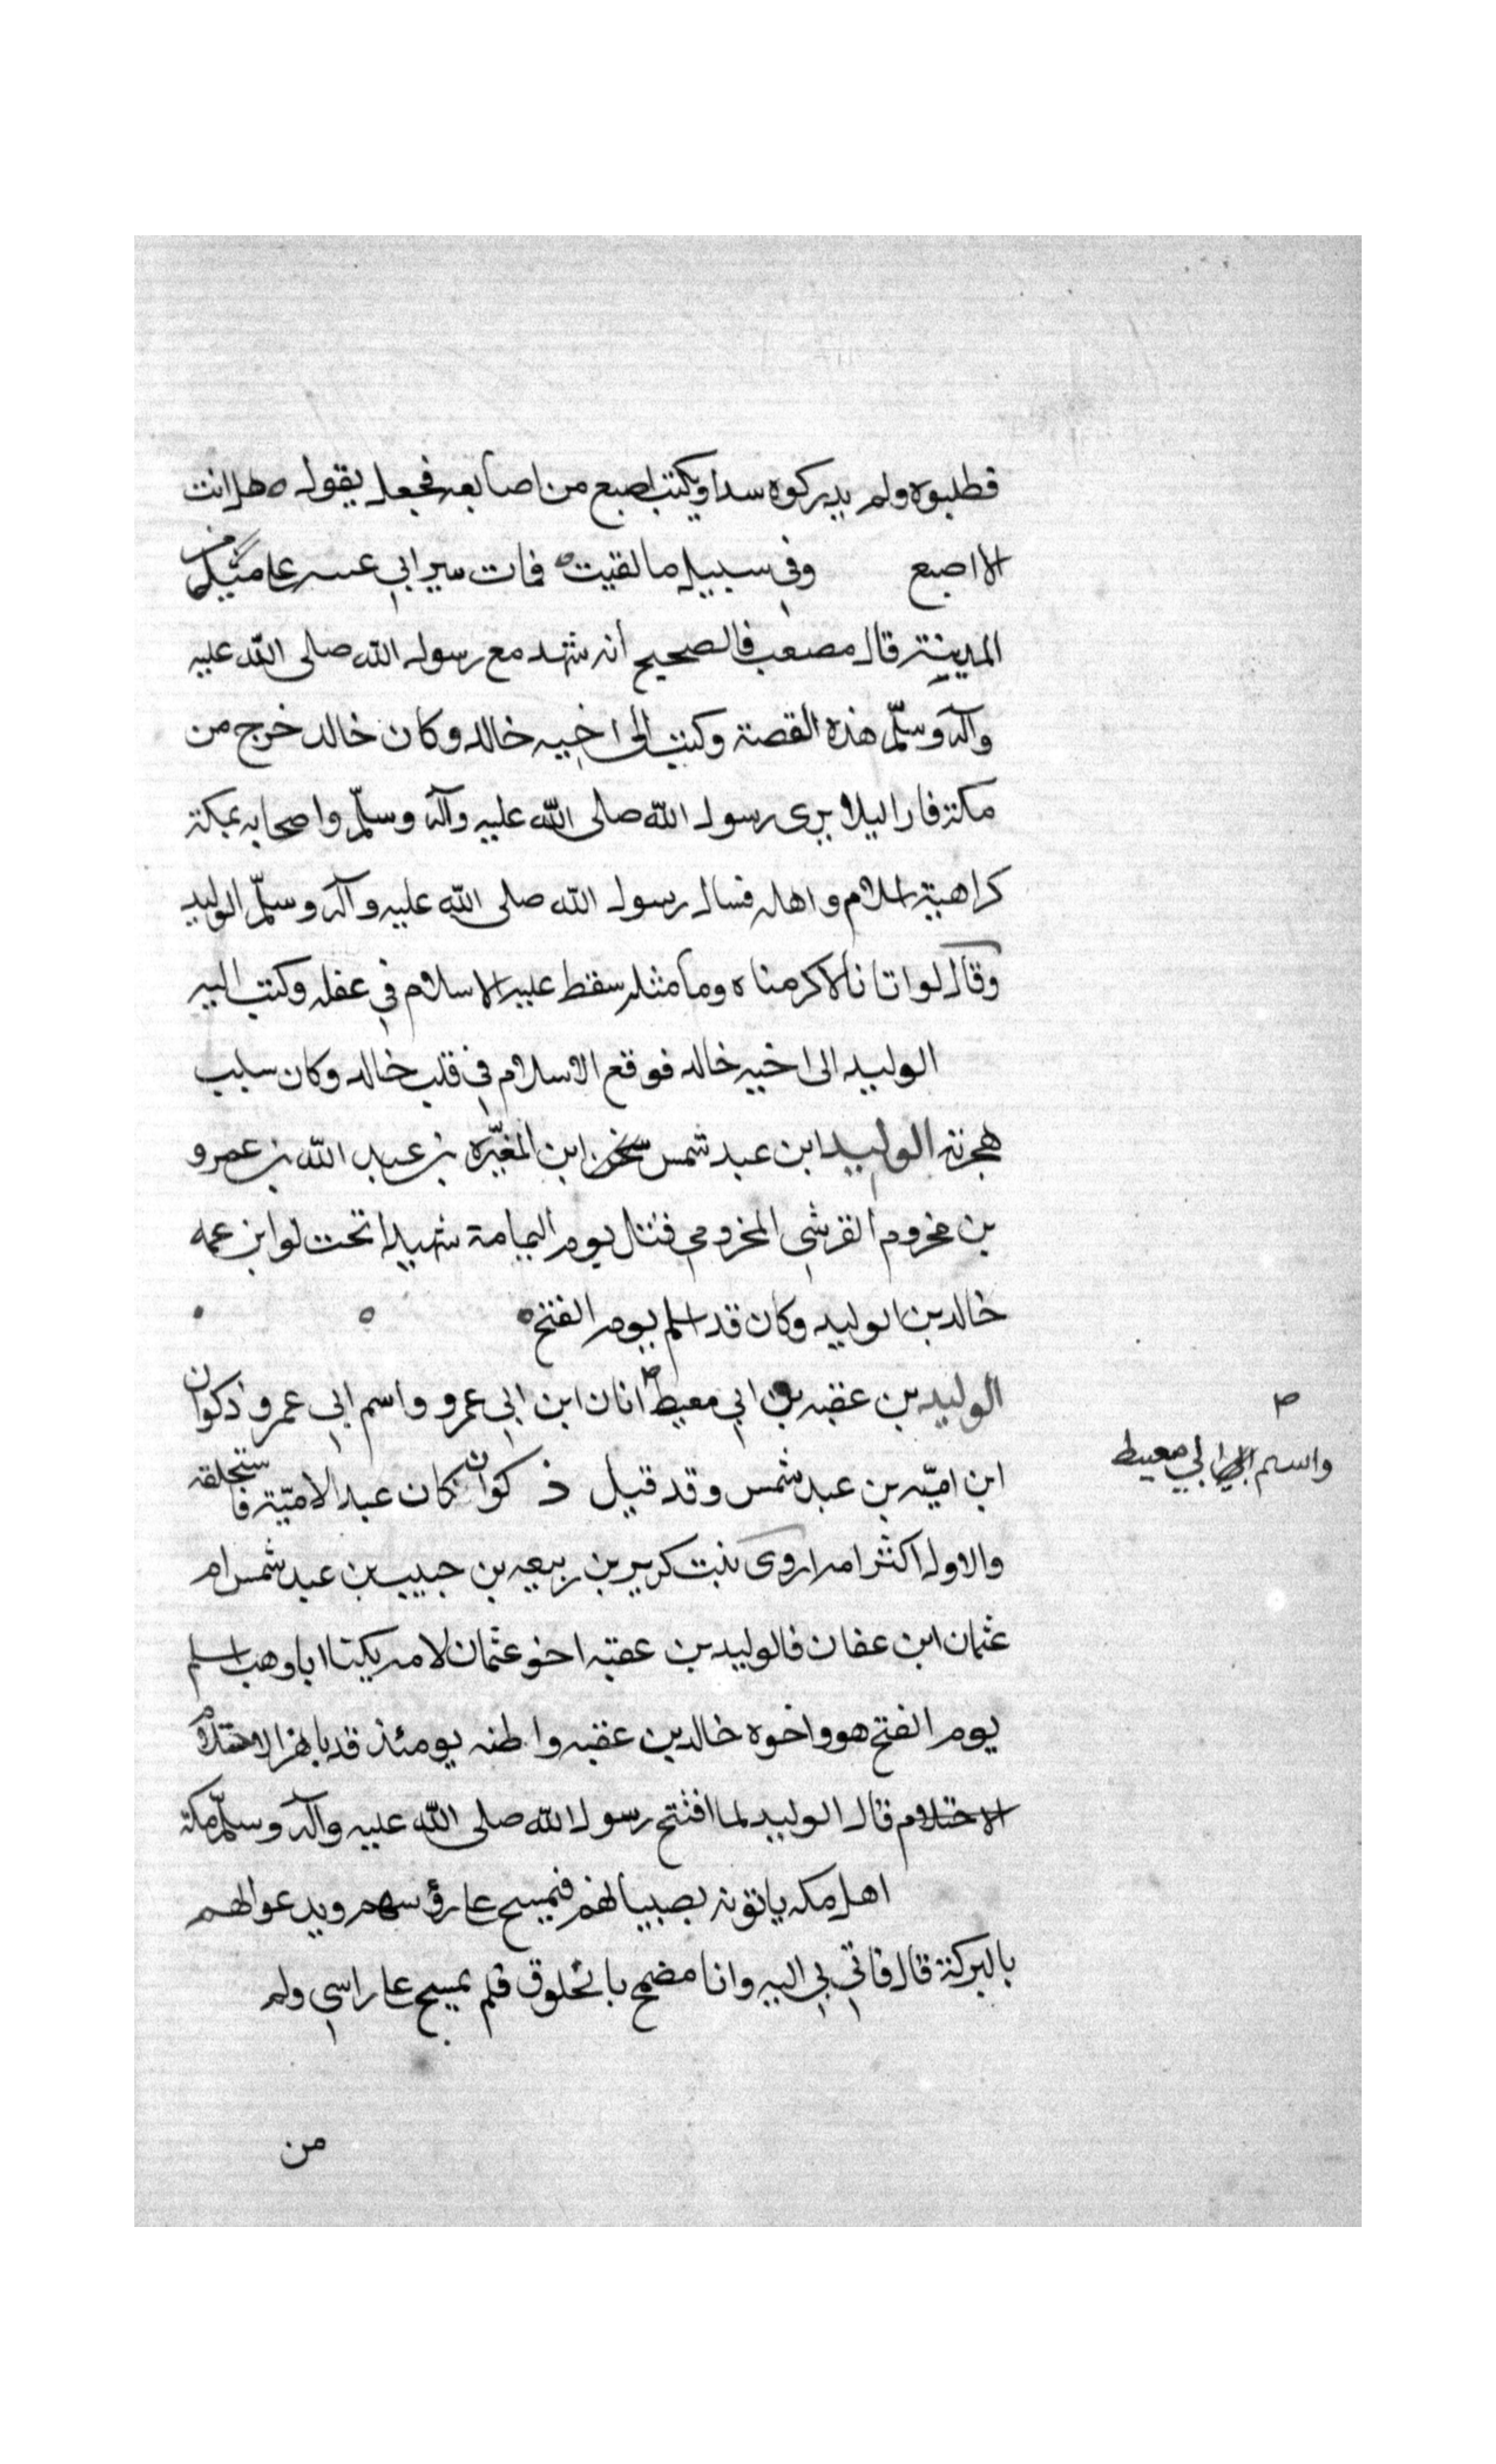 فطلبوه ولم يدركوه سدا ويكتب اصبع من اصابعه فجعل يقول ه هل انت
الا اصبع وفي سبيل ما لقيت ه فمات ببير ابي عتبه على ميل من
المدينة قال مصعب فالصحيح انه شهد مع رسول الله صلى الله عليه
وآله وسلّم هذه القصة وكتب الى اخيه خالد وكان خالد خرج من
مكة فارا ليلا يرى رسول الله صلى الله عليه وآله وسلّم واصحابه بمكة
كراهية اسلام واهله فسال رسول الله صلى الله عليه وآله وسلّم الوليد
وقال لو اتانا لاكرمناه وما مثله سقط عليه الاسلام في عقله وكتب اليه
الوليد الى اخيه خالد فوقع الاسلام في قلب خالد وكان سبب
هجرته الوليد ابن عبد شمس ابن المغيّره بن عبد الله بن عمرو
بن مخروم القرشي المخزومي قتل يوم اليمامة شهيدا تحت لوا بن عمه
خالد بن الوليد وكان قد اسلم يوم الفتح ه
الوليد بن عقبه بن ابي معيط انان ابن ابي عمرو واسم ابي عمرو ذكوان
ابن اميّه بن عبد شمس وقد قيل ذكوان كان عبد الاميّة فاستحلقه
والاول اكثر امه اروى بنت كريز بن ربيعه بن حبيب بن عبد شمس ام
عثمان ابن عفان فالوليد بن عقبه اخو عثمان لامه يكنا ابا وهب اسلم
يوم الفتح هو واخوه خالد بن عقبه واظنه يومئذ قد ناهز الاحتلام
الاحتلام قال الوليد لما افتتح رسول الله صلى الله عليه وآله وسلّم مكة
اهل مكه ياتونه بصبيانهم فيمسح على رؤسهم ويدعوا لهم
بالبركة قال فاتي بي اليه وانا مضمح بالخلوق فلم يمسح على راسي ولم
من
واسم ابي معيط